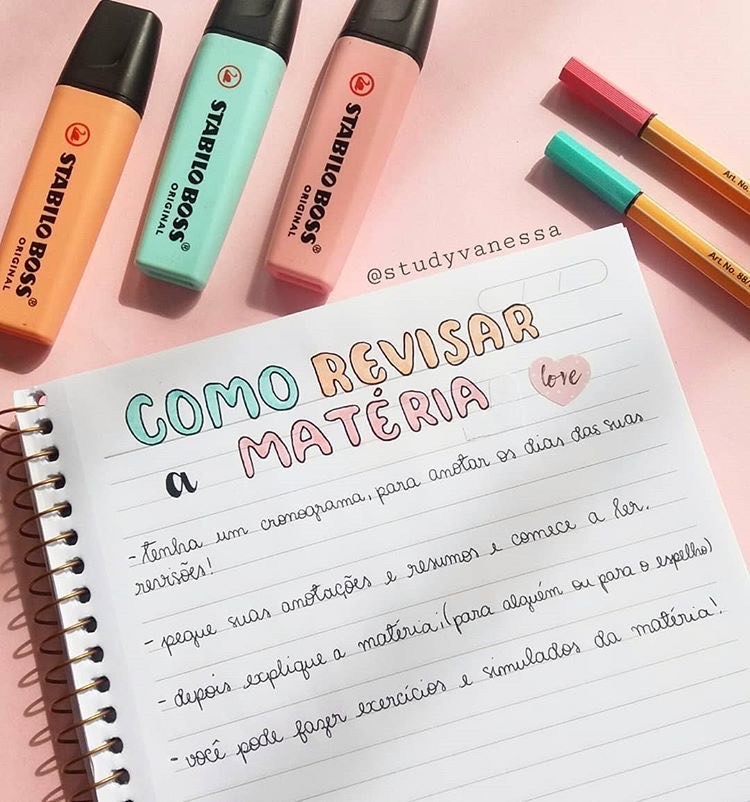 STABILO BOSS
ORIGINAL
STABILO BOSS
ORIGINAL
STABILO BOSS
ORIGINAL
Art. No.
Art. No. 88/
@studyvanessa
COMO REVISAR
a MATÉRIA
love
- tenha um cronograma, para anotar os dias das suas
revisões!
- pegue suas anotações e resumos e comece a ler.
- depois explique a matéria, (para alguém ou para o espelho)
- você pode fazer exercícios e simulados da matéria!